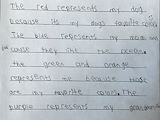 The red represents my dog
because its my dogs favorite color.
The blue represents my mom and
cause they like the ocean.
The green and orange
represents me because those
are my favorite colors. The
purple represents my grandparents